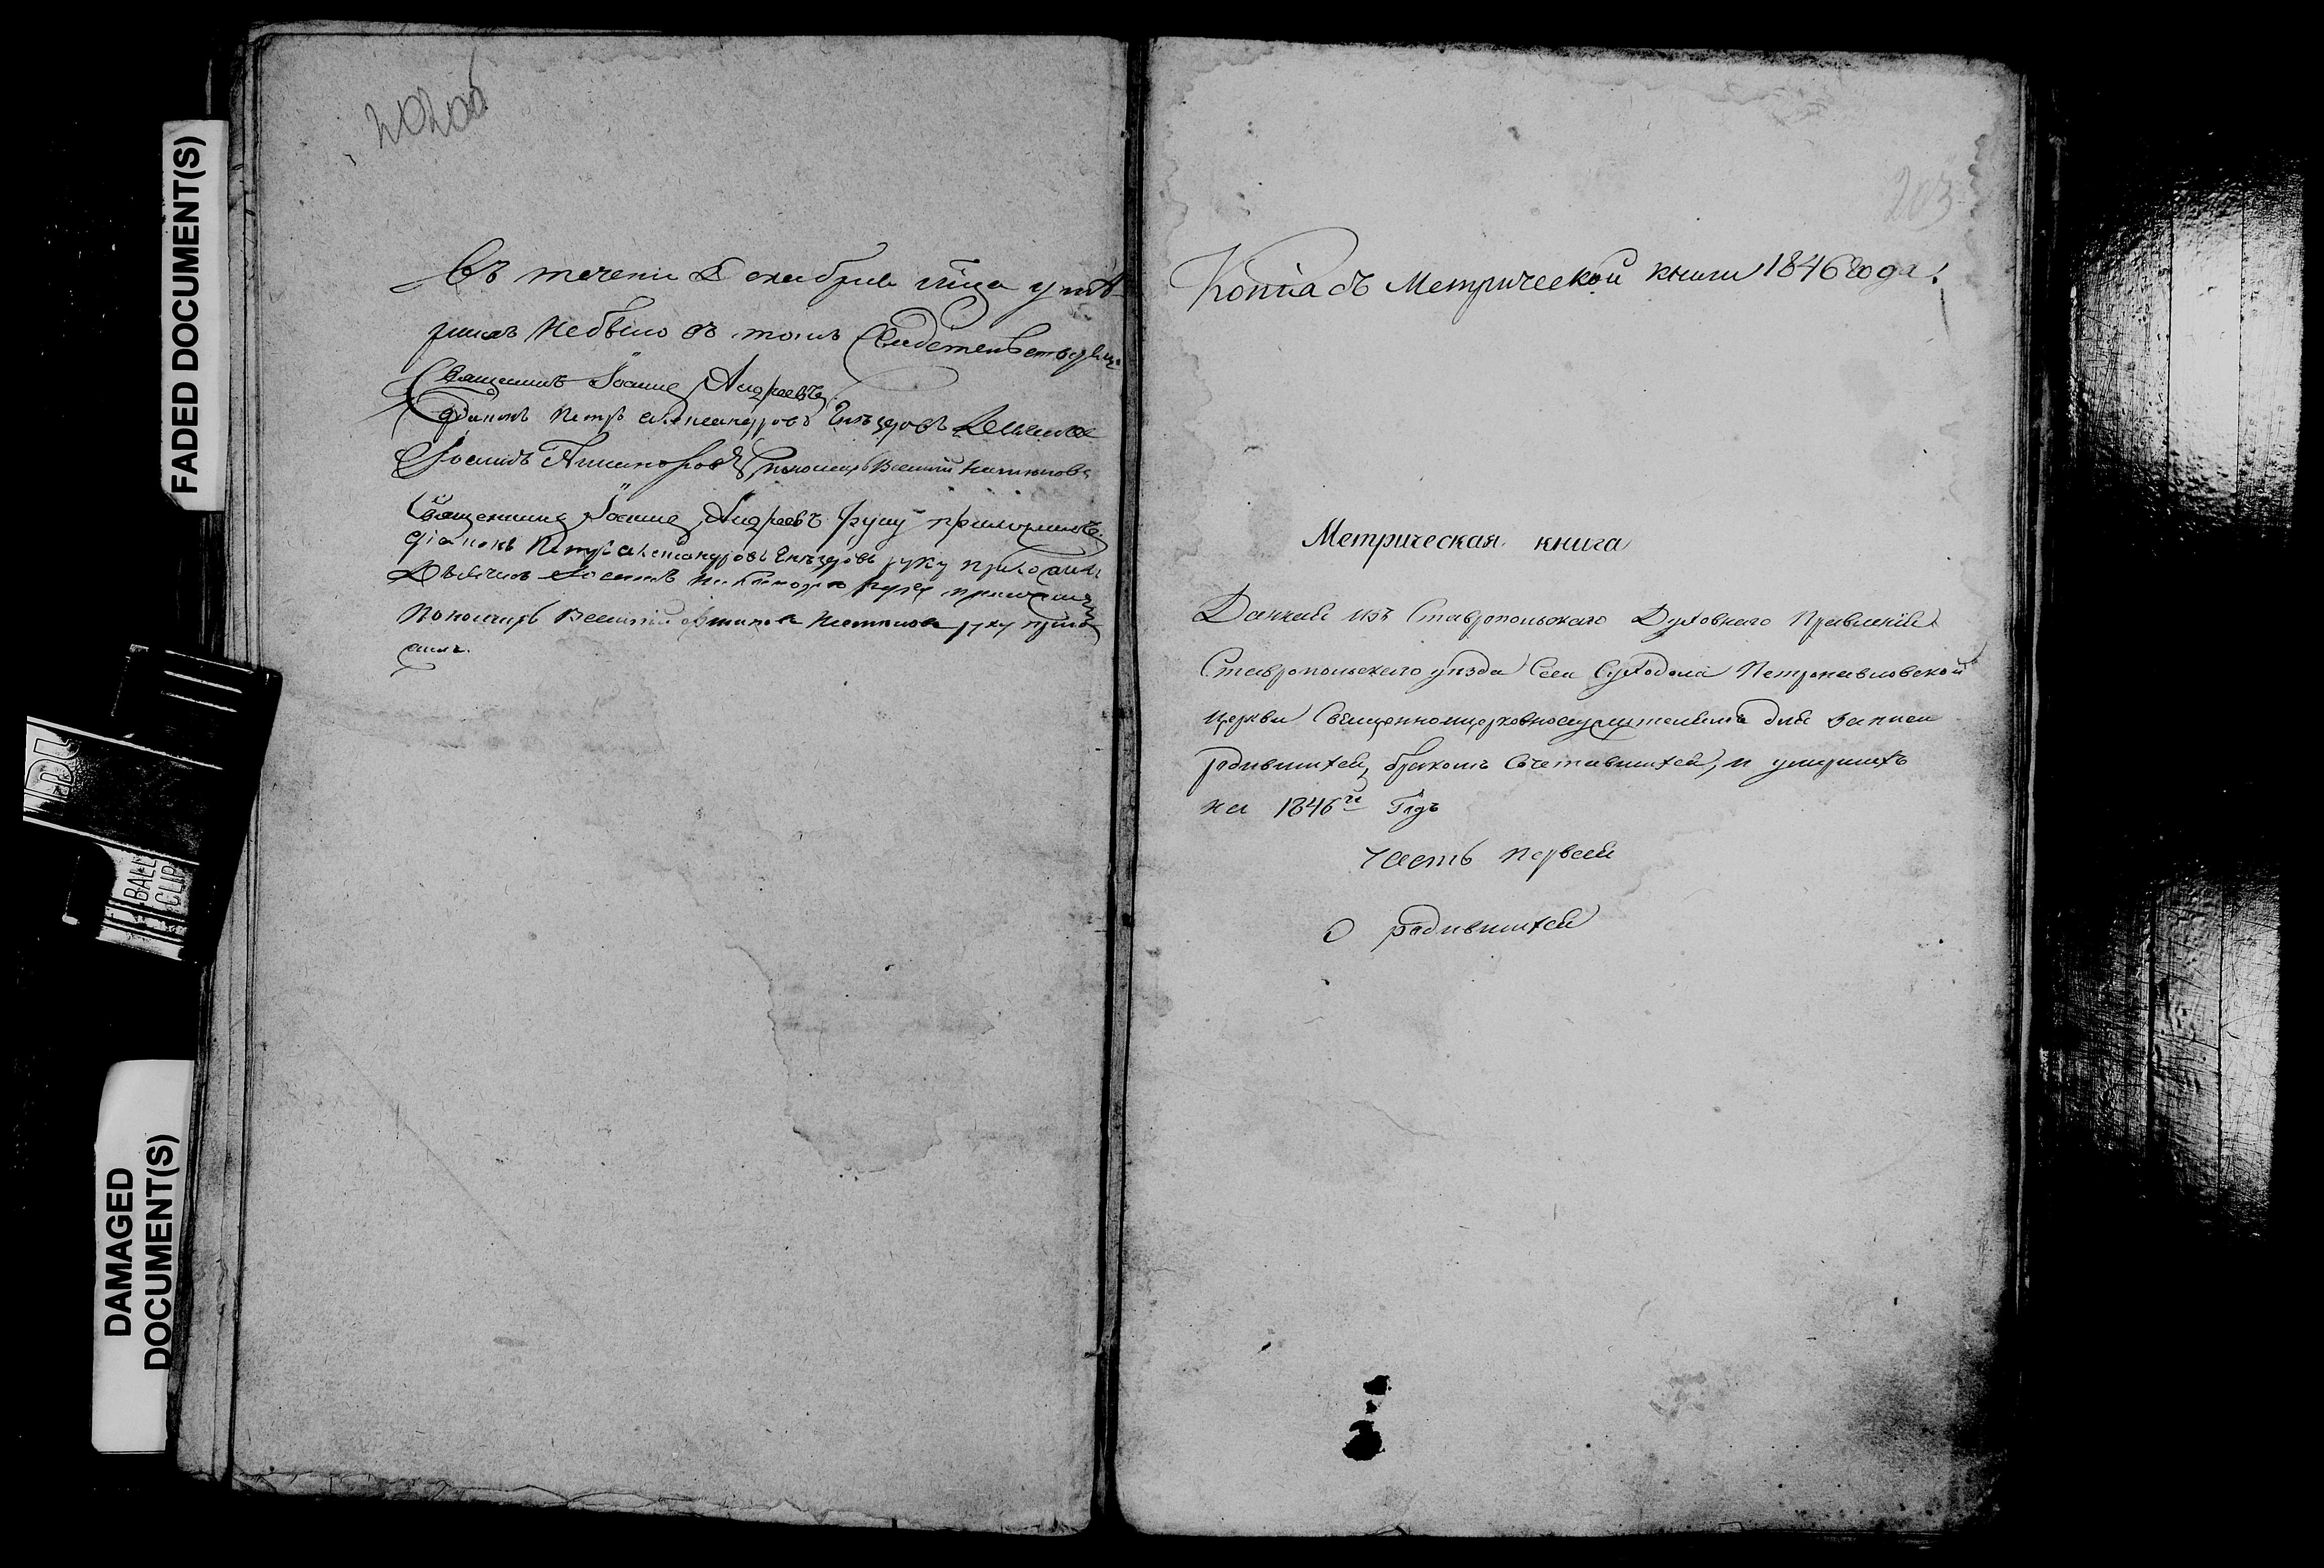 FADED DOCUMENT(S)
DAMAGED
DOCUMENT(S)
BALL
CLIP
202об
Въ течени Декабря мца уме
ршихъ небыло въ томъ Свидетельствуемъ
Священникъ Іоаннъ Андреевъ
Діаконъ Петръ Александровъ Дьячекъ
Іоаннъ Пономарь Василий
Священникъ Іоаннъ Андреевъ руку приложилъ
Діаконъ Петръ Александровъ руку приложилъ
Дьячекъ Іоаннъ руку приложилъ
Пономарь Василий руку прило
жилъ.
203
Копiа съ Метрической книги 1846 года.
Метрическая книга
Данная изъ Ставропольскаго Духовнаго Правленiя
Ставропольскаго уѣзда Села Суходола Петропавловской
церкви Священноцерковнослужителямъ для записи
родившихся, бракомъ Сочетавшихся, и умершихъ
на 1846й Годъ
Часть первая
О родившихся